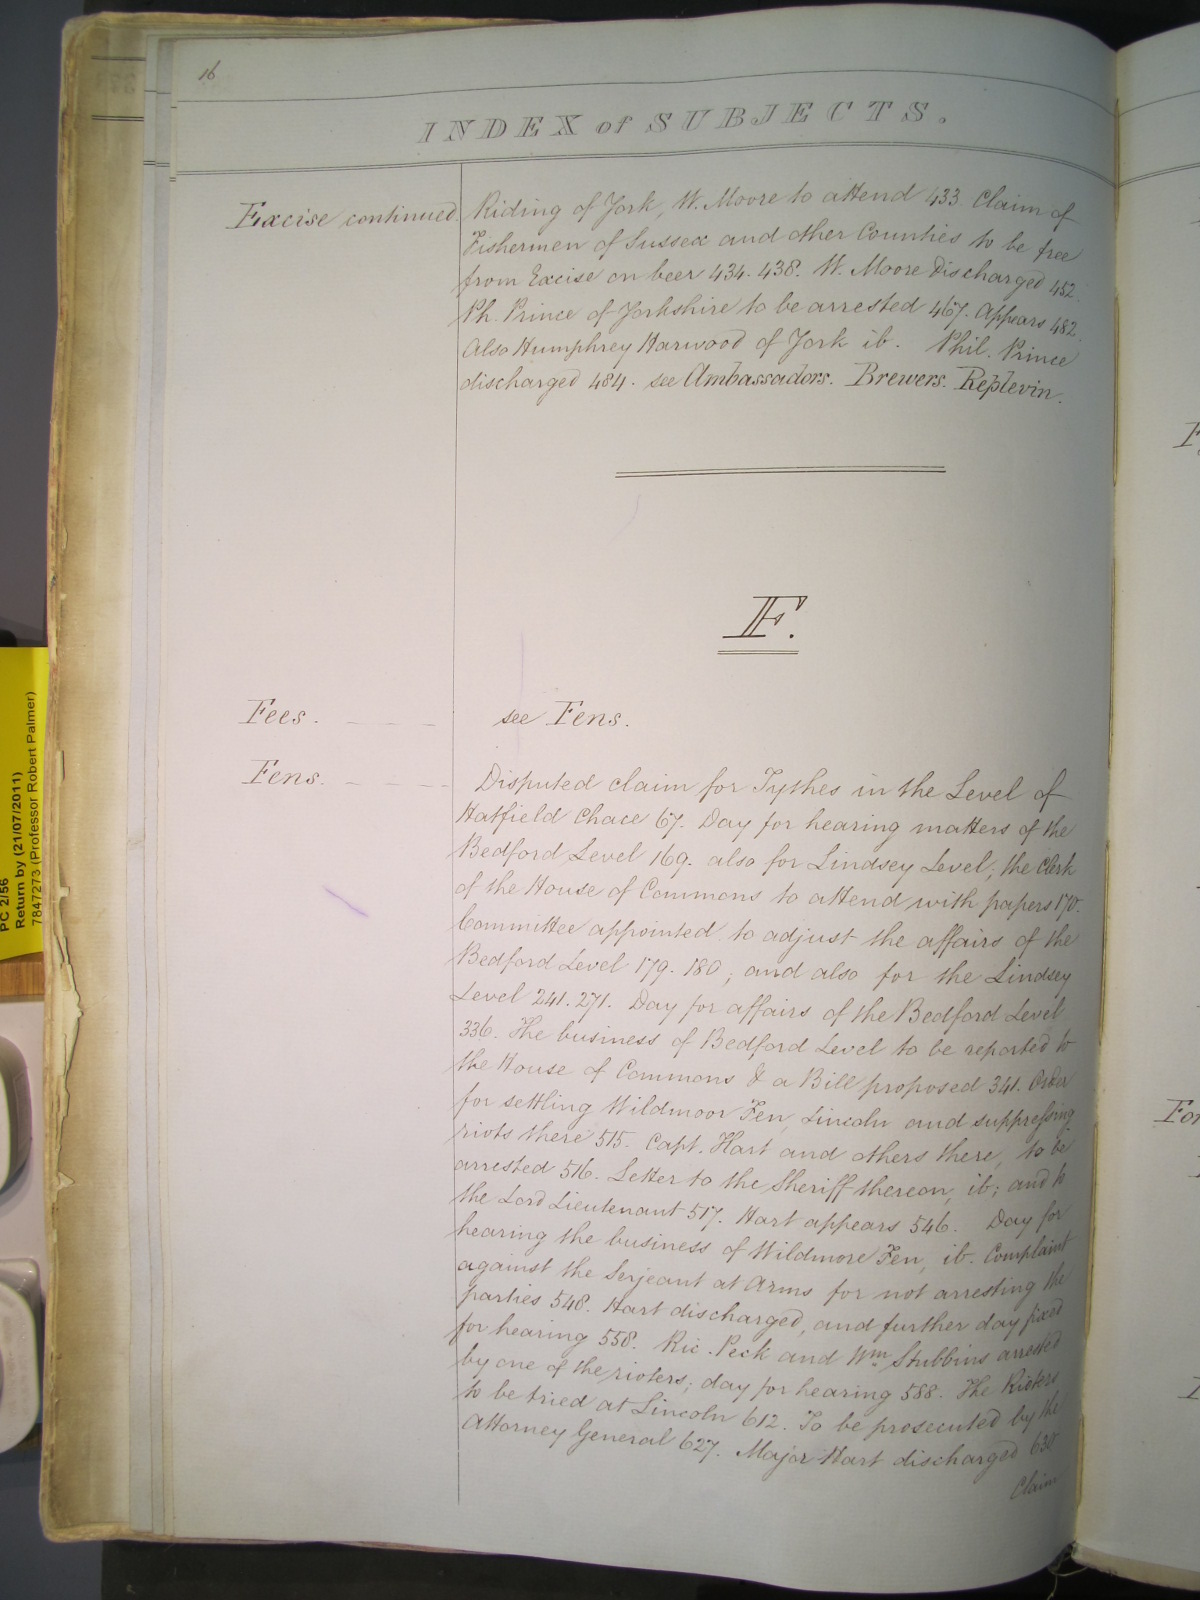 16
INDEX of SUBJECTS.
Excise continued
Riding of York, W. Moore to attend 433. Claim of
Fishermen of Sussex and other Counties to be free
from Excise on beer 434. 438. W. Moore Discharged 452.
Ph. Prince of Yorkshire to be arrested 467. Appears 482.
Also Humphrey Harwood of York ib. Phil. Prince
discharged 484. see Ambassadors. Brewers. Replevin.
F.
Fees.
see Fens.
Fens.
Disputed claim for Tythes in the Level of
Hatfield Chace 67. Day for hearing matters of the
Bedford Level 169. also for Lindsey Level; the Clerk
of the House of Commons to attend with papers 170.
Committee appointed to adjust the affairs of the
Bedford Level 179. 180; and also for the Lindsey
Level 241. 271. Day for affairs of the Bedford Level
336. The business of Bedford Level to be reported to
the House of Commons & a Bill proposed 341. Order
for settling Wildmoor Fen, Lincoln and suppressing
riots there 515. Capt. Hart and others there, to be
arrested 516. Letter to the Sheriff thereon, ib; and to
the Lord Lieutenant 517. Hart appears 546. Day for
hearing the business of Wildmore Fen, ib. Complaint
against the Serjeant at Arms for not arresting the
parties 548. Hart discharged, and further day fixed
for hearing 558. Ric. Peck and Wm Stubbins arrested
by one of the rioters; day for hearing 588. The Rioters
to be tried at Lincoln 612. To be prosecuted by the
Attorney General 627. Major Hart discharged 630
Claim
PC 2/56
Return by (21/07/2011)
7847273 (Professor Robert Palmer)